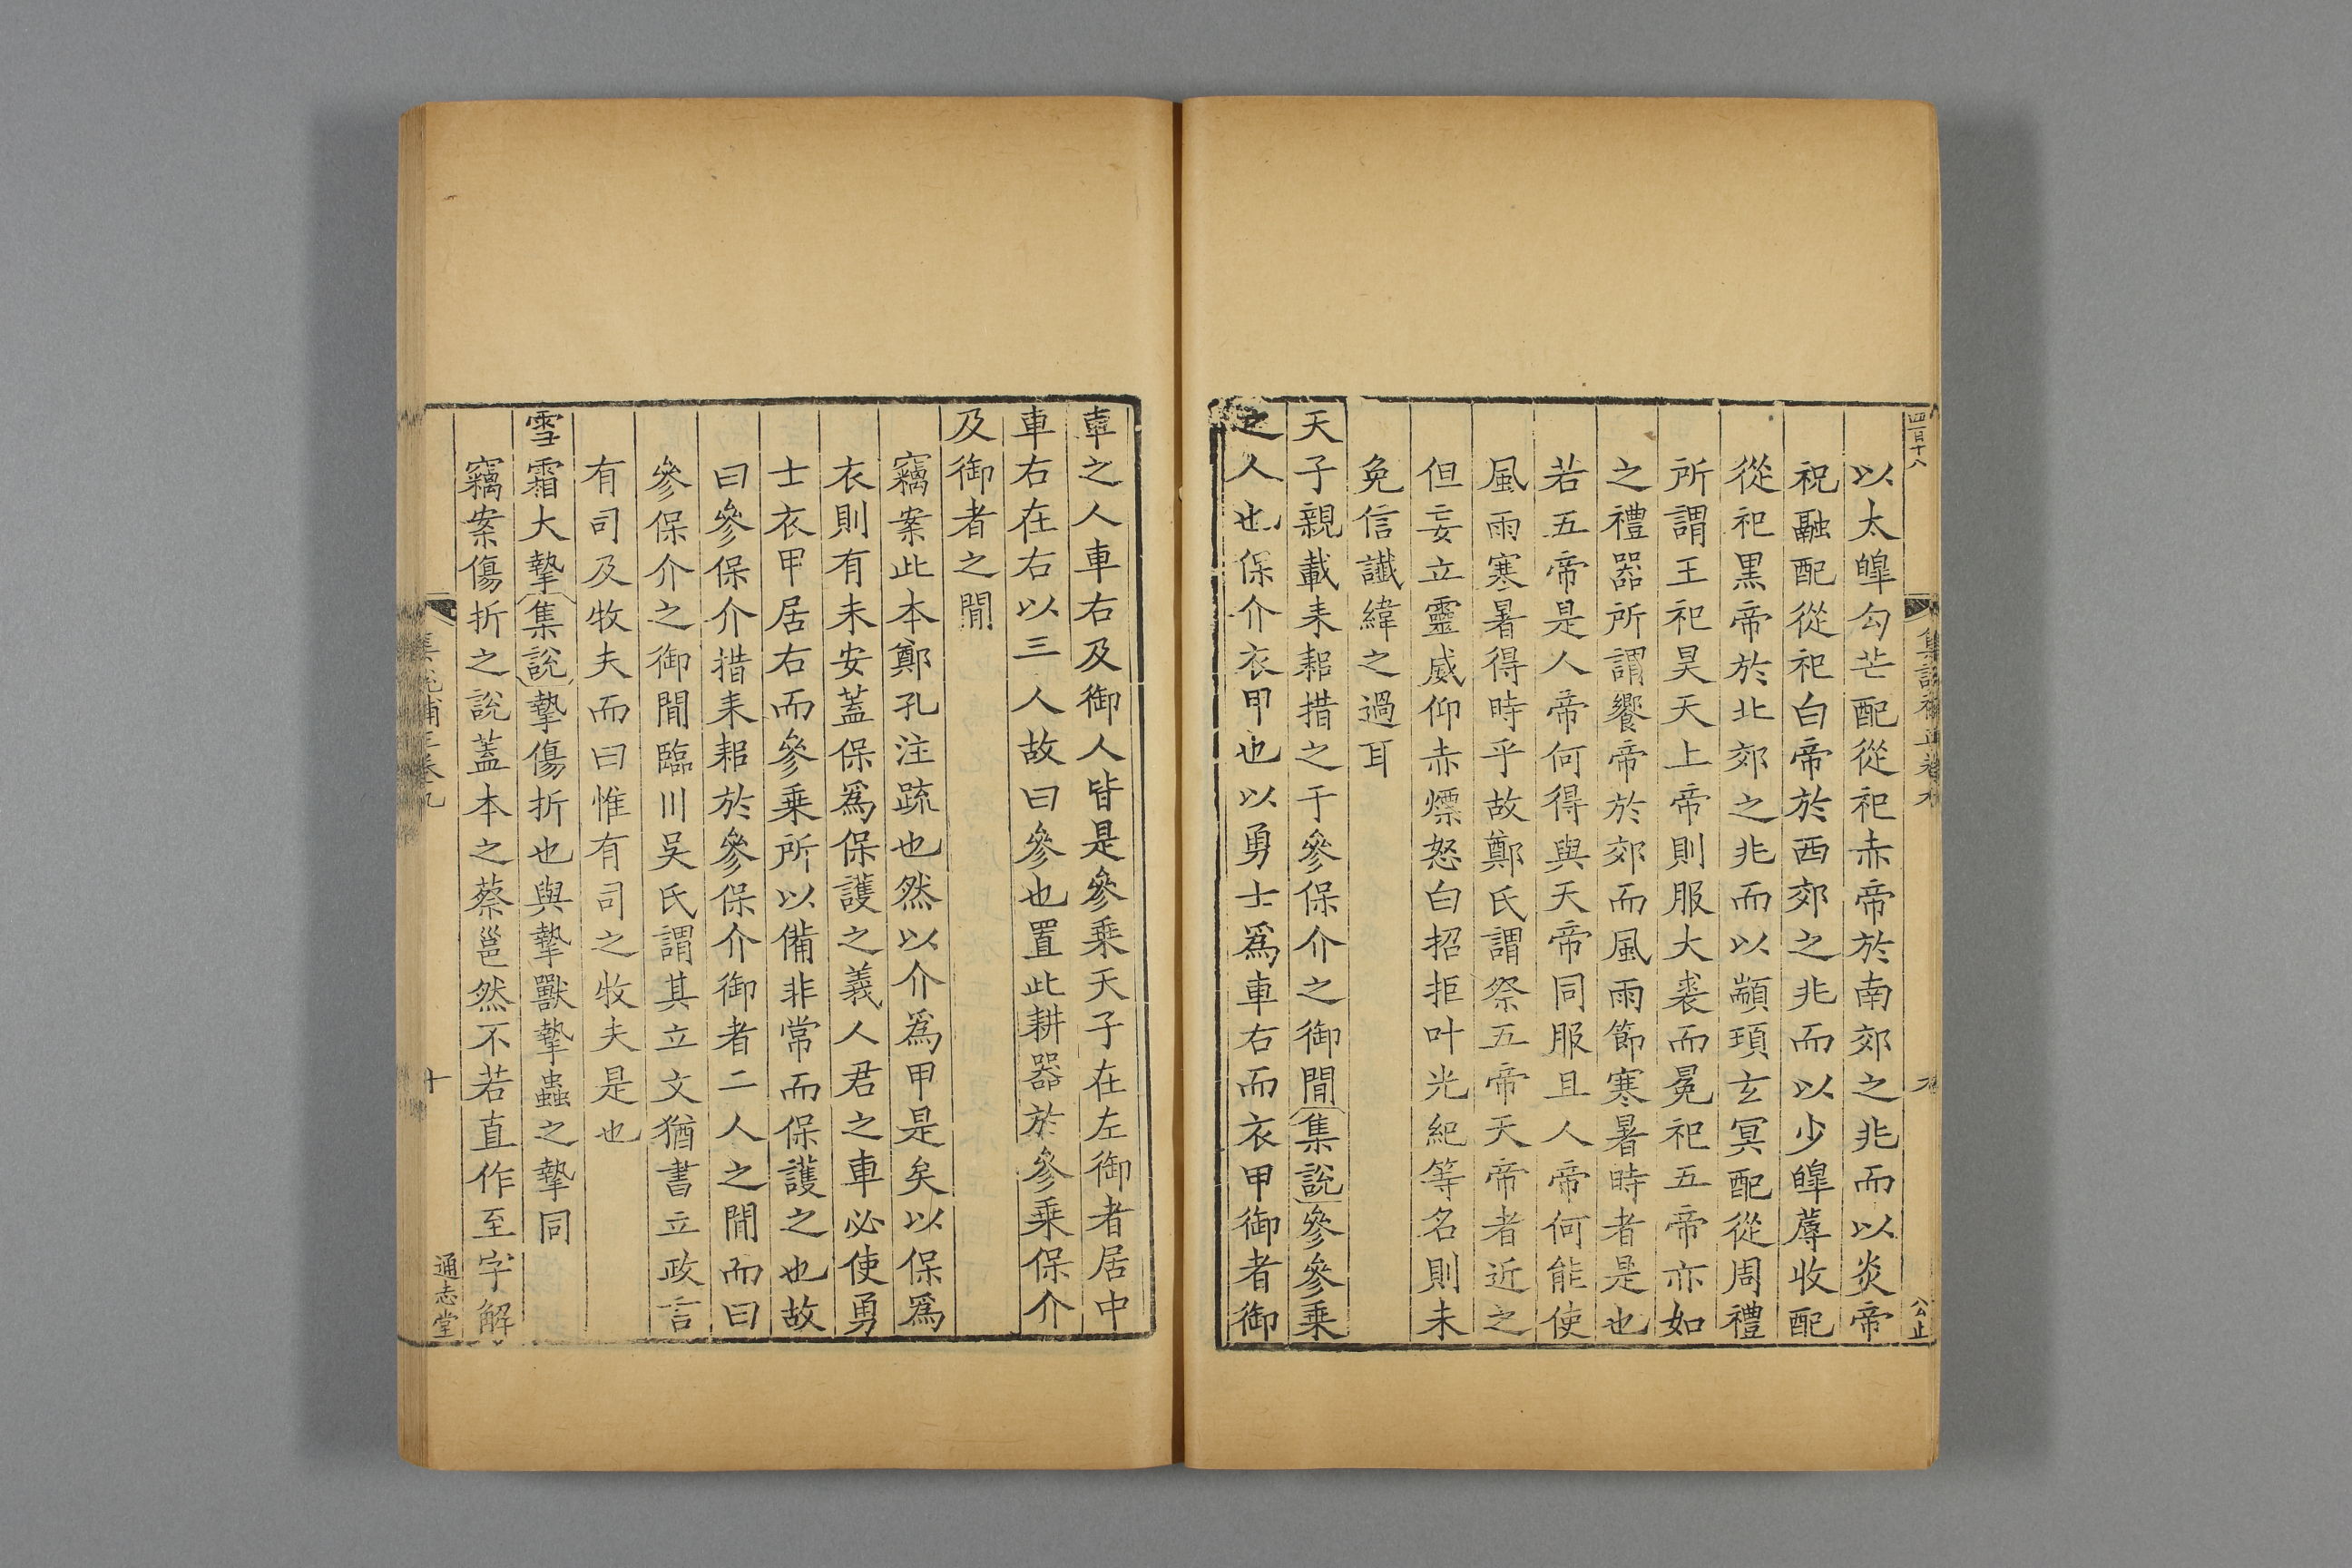 四百十八
以太皥勾芒配從祀赤帝於南郊之兆而以炎帝
祝融配從祀白帝於西郊之兆而以少皥蓐收配
從祀黒帝於北郊之兆而以顓頊玄冥配從周禮
所謂王祀昊天上帝則服大裘而冕祀五帝亦如
之禮器所謂饗帝於郊而風雨節寒暑時者是也
若五帝是人帝何得與天帝同服且人帝何能使
風雨寒暑得時乎故鄭氏謂祭五帝天帝者近之
但妄立靈威仰赤熛怒白招拒叶光紀等名則未
免信讖緯之過耳
天子親載耒耜措之于參保介之御間集說參參乘
之人也保介衣甲也以勇士爲車右而衣甲御者御
車之人車右及御人皆是參乘天子在左御者居中
車右在右以三人故曰參也置此耕器於參乘保介
及御者之閒
竊案此本鄭孔注疏也然以介爲甲是矣以保爲
衣則有未安蓋保爲保護之義人君之車必使勇
士衣甲居右而參乘所以備非常而保護之也故
曰參保介措耒耜於參保介御者二人之閒而曰
參保介之御間臨川吳氏謂其立文猶書立政言
有司及牧夫而曰惟有司之牧夫是也
雪霜大摯集說摯傷折也與摯獸摯蟲之摯同
竊案傷折之說蓋本之蔡邕然不若直作至字解
十
通志堂